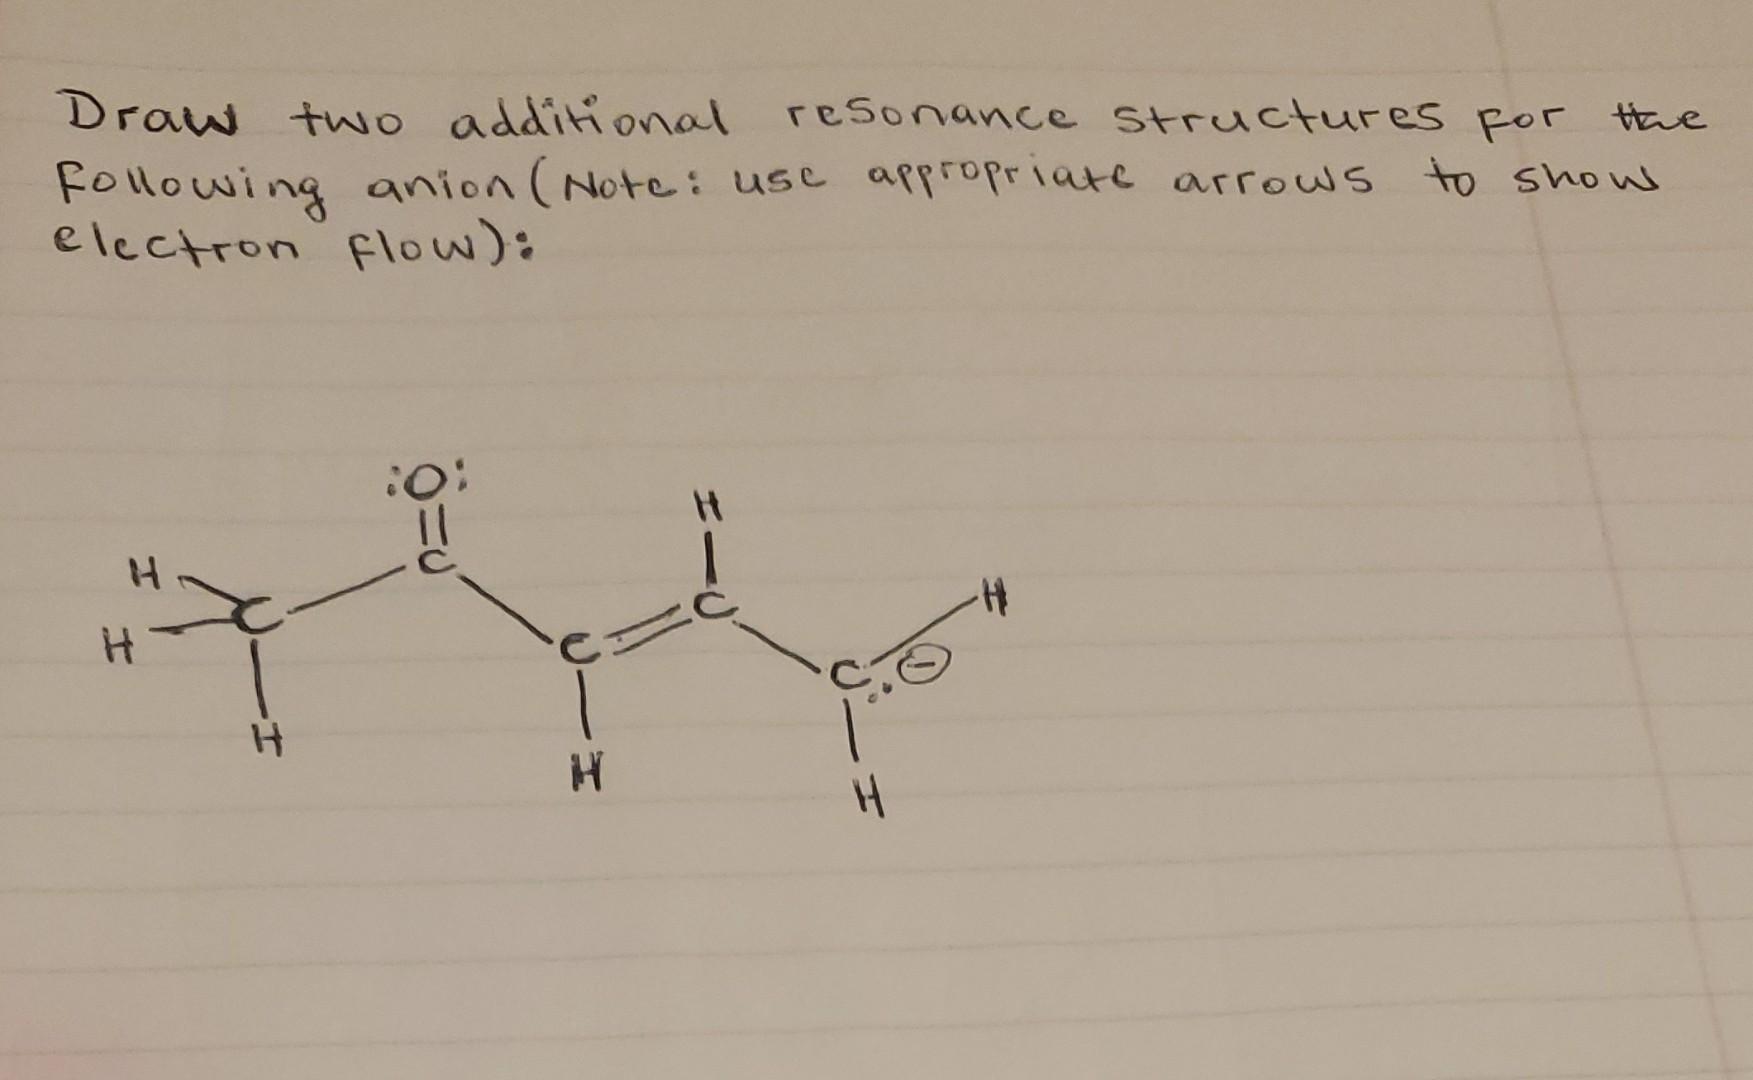 Draw two additional resonance structures for the
following anion (Note: use appropriate arrows to show
electron flow):
:O:
H
H
C
C
H
H
C
C
H
C
:
⊖
H
H
H